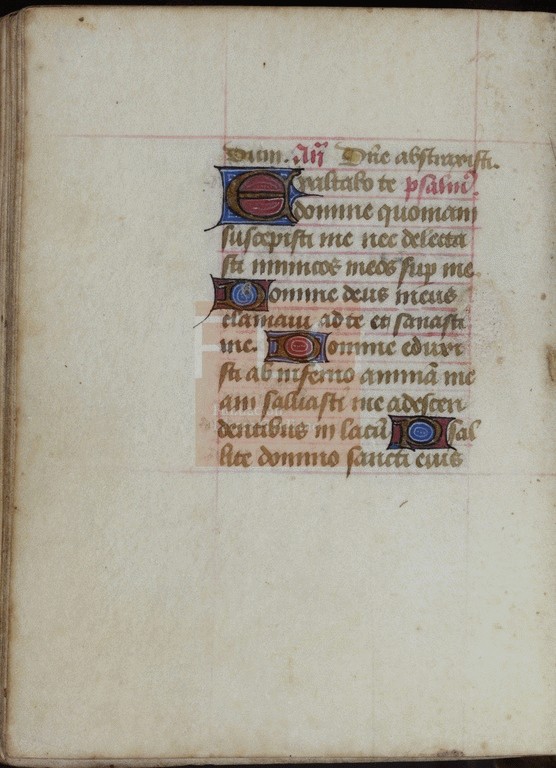 Dium. Añ Dñe abstraxisti.
Exaltabo te psalm9.
domine quoniam
suscepisti me nec delecta
sti inimicos meos sup me.
Domine deus meus
clamaui ad te et sanasti
me. Domine eduxi
sti ab inferno animã me
am saluasti me a descen
dentibus in lacũ Psal
lite domino sancti eius